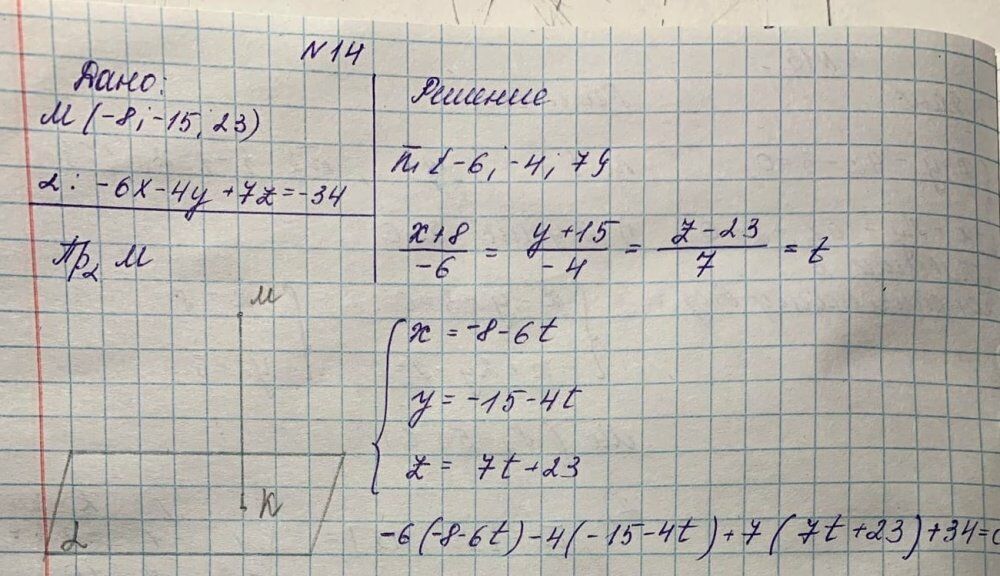 N14
Дано:
M (-8; -15; 23)
α: -6x-4y+7z=-34
Пр_α M
M
K
α
Решение
n̄ {-6; -4; 7}
(x+8)/(-6) = (y+15)/(-4) = (z-23)/7 = t
x = -8-6t
y = -15-4t
z = 7t+23
-6(-8-6t)-4(-15-4t)+7(7t+23)+34=0